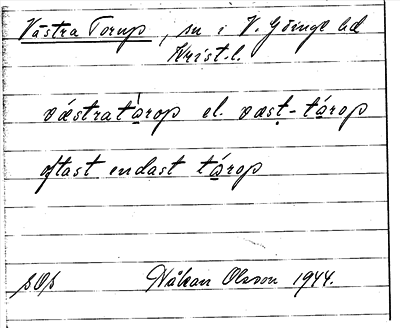 Västra Torup, sn i V. Göinge hd
Krist. l.
væstratå̱rop el. væsṭ-tå̱rop
oftast endast tå̱rop
sOs Håkan Olsson 1944.